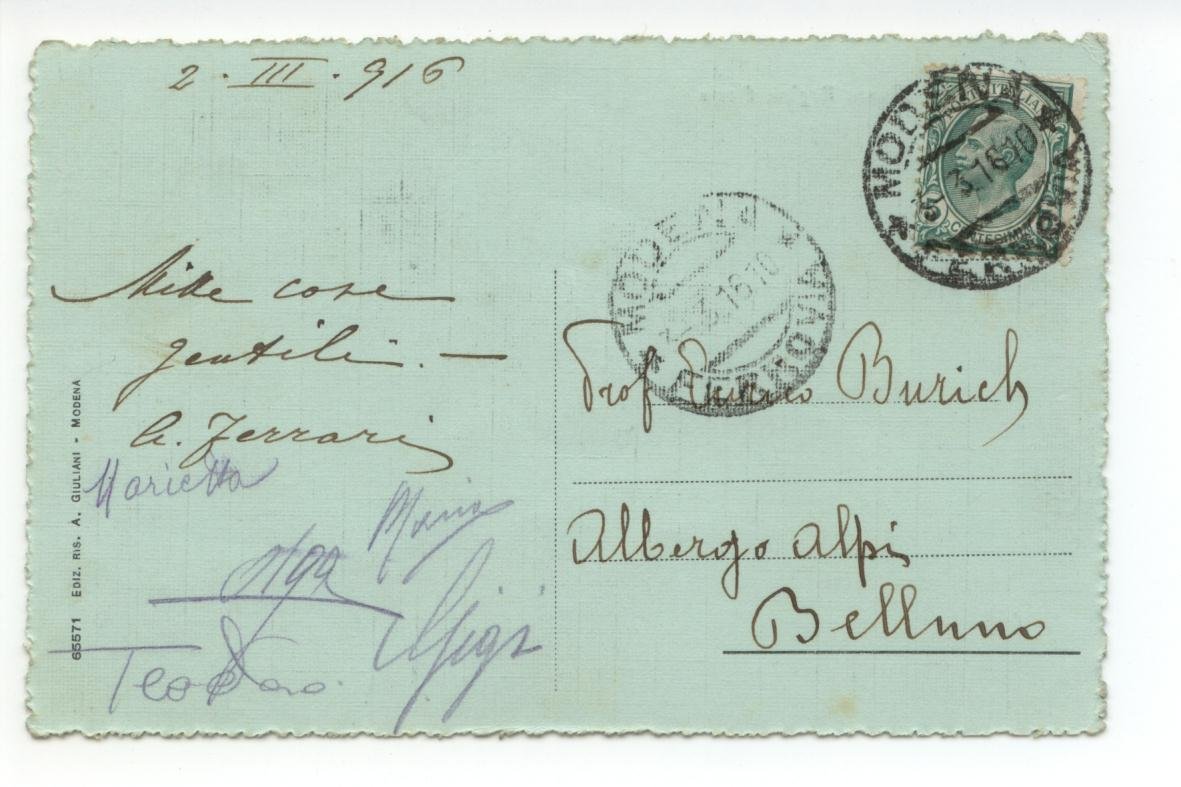 2 · III · 916
POSTE ITALIANE
5
CENTESIMI
MODENA
3.16.10
FERROVIA
MODENA
3.16.10
FERROVIA
Mille cose
gentili. —
A. Ferrari
Marietta
Maria
Olga
Gigi
Teodoro
65571 EDIZ. RIS. A. GIULIANI - MODENA
Prof Enrico Burich
Albergo Alpi
Belluno